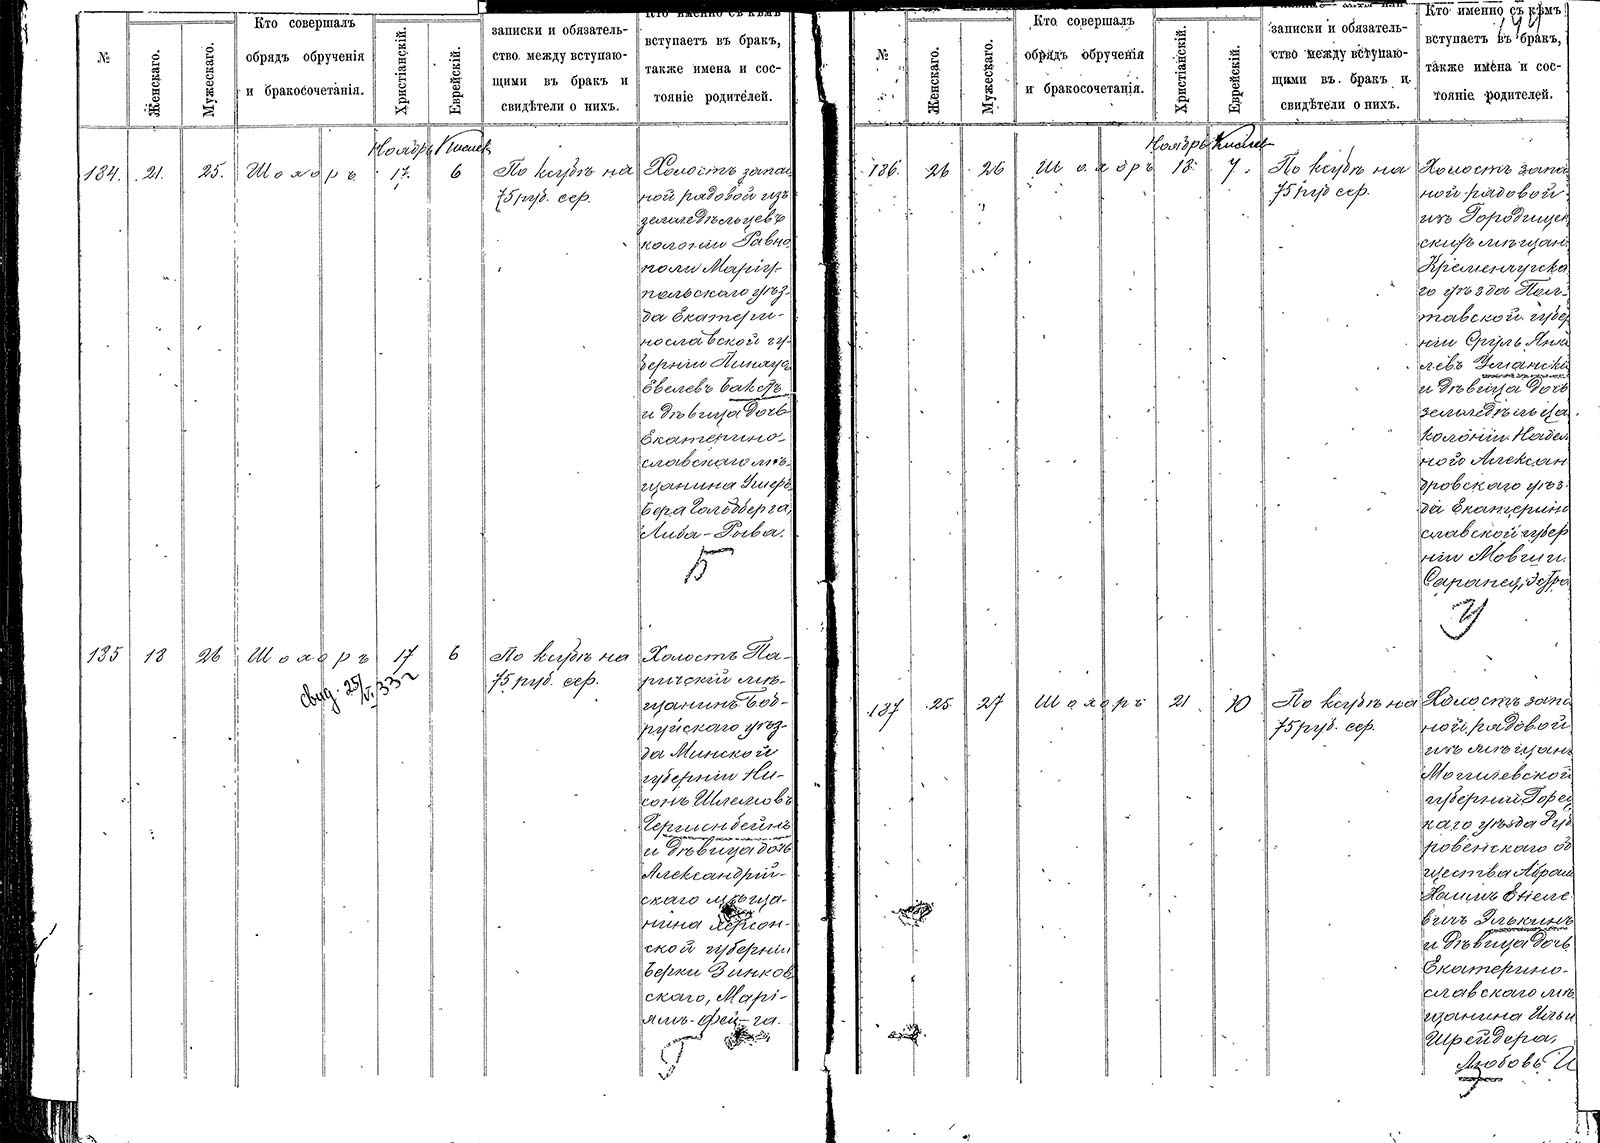 №
Женскаго.
Мужескаго.
Кто совершалъ
обрядъ обрученія
и бракосочетанія.
Христіанскій.
Еврейскій.
записки и обязатель-
ство между вступаю-
щими въ бракъ и
свидѣтели о нихъ.
Кто именно съ кѣмъ
вступаетъ въ бракъ,
также имена и сос-
тояніе родителей.
Ноябрь Кислев
134. 21. 25. Шохоръ 17. 6
По ксубѣ на
75 руб. сер.
Холостъ запа
ной рядовой изъ
земледѣльцевъ
колоніи Равно
поли Маріу-
польскаго уѣз-
да Екатери-
нославской гу-
берніи
Евелевъ Бакстъ
и дѣвица дочь
Екатерино-
славскаго мѣ-
щанина Ушеръ
Бера Гольдберга,
Либа-Рыва.
Б
135 18 26 Шохоръ 17 6
свид. 25/VI 33 г
По ксубѣ на
75 руб. сер.
Холостъ Па-
ричскій мѣ-
щанинъ Боб-
руйскаго уѣз-
да Минской
губерніи Ни-
сонъ Шлемовъ
Герценбейнъ
и дѣвица дочь
Александрій-
скаго мѣща-
нина Херсон-
ской губерніи
Берки Зинков
скаго, Марі-
ямъ-Фей-га.
Г
№
Женскаго.
Мужескаго.
Кто совершалъ
обрядъ обрученія
и бракосочетанія.
Христіанскій.
Еврейскій.
записки и обязатель-
ство между вступаю-
щими въ бракъ и
свидѣтели о нихъ.
Кто именно съ кѣмъ
вступаетъ въ бракъ,
также имена и сос-
тояніе родителей.
Ноябрь Кислев
136. 26 26 Шохоръ 18 7.
По ксубѣ на
75 руб сер.
Холостъ запа
ной рядовой
изъ Городищен
скихъ мѣщан
Кременчугска
го уѣзда Пол-
тавской губер
ніи Сруль Янке
левъ Уманскій
и дѣвица дочь
земледѣльца
колоніи Надеж
ной Алексан
дровскаго уѣз-
да Екатерино
славской губер
ніи Мовши
Саранец,
У
137 25 27 Шохоръ 21 10
По ксубѣ на
75 руб. сер.
Холостъ запа
ной рядовой
изъ мѣщанъ
Могилевской
губерніи Горец
каго уѣзда Дуб
ровенскаго об
щества Абрам
Хаимъ Евеле
вичъ Элькинъ
и дѣвица дочь
Екатерино-
славскаго мѣ
щанина Ильи
Шрейдера,
Любовь
Э